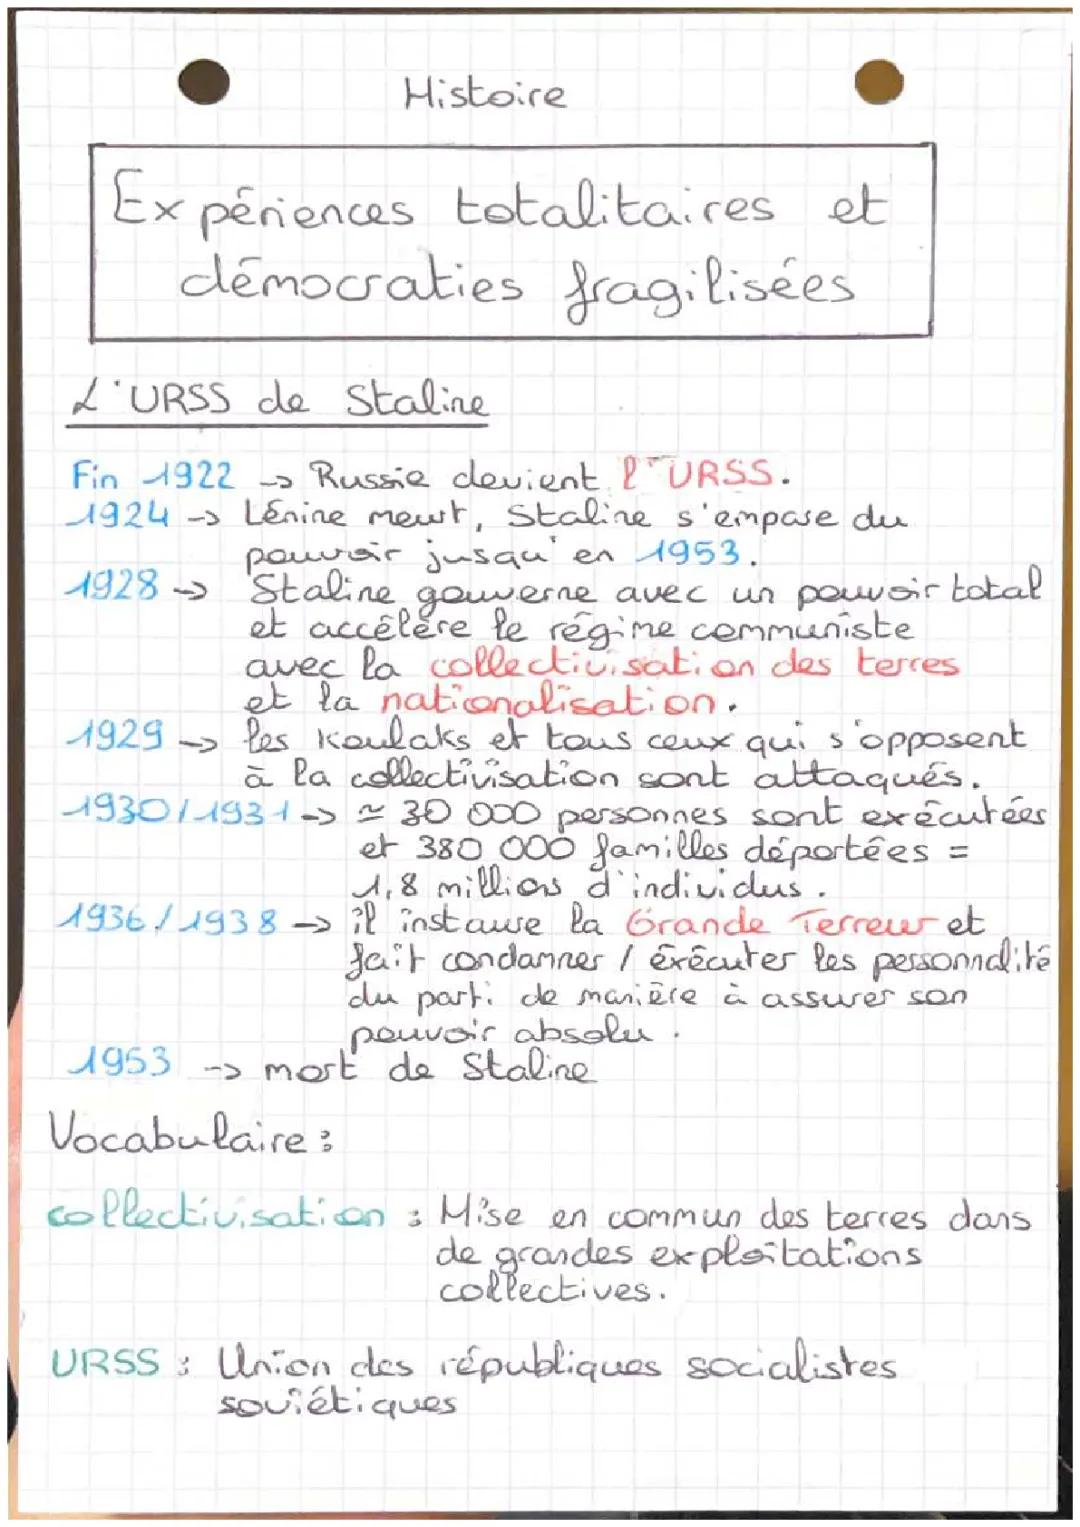 Histoire
Expériences totalitaires et
démocraties fragilisées
L'URSS de Staline
Fin 1922 -> Russie devient l'URSS.
1924 -> Lénine meurt, Staline s'empare du
pouvoir jusqu'en 1953.
1928 -> Staline gouverne avec un pouvoir total
et accélère le régime communiste
avec la collectivisation des terres
et la nationalisation.
1929 -> les Koulaks et tous ceux qui s'opposent
à la collectivisation sont attaqués.
1930/1931 -> ≃ 30 000 personnes sont exécutées
et 380 000 familles déportées =
1,8 millions d'individus.
1936/1938 -> il instaure la Grande Terreur et
fait condamner / éxécuter les personnalité
du parti de manière à assurer son
pouvoir absolu.
1953 -> mort de Staline
Vocabulaire :
collectivisation : Mise en commun des terres dans
de grandes exploitations
collectives.
URSS : Union des républiques socialistes
soviétiques